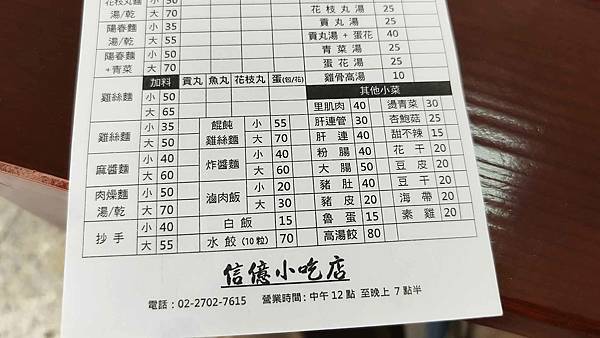 花枝丸麵 小 50 花枝丸湯 25
湯/乾 大 70 貢丸湯 25
陽春麵 小 35 貢丸湯 + 蛋花 40
湯/乾 大 55 青菜湯 25
陽春麵 小 50 蛋花湯 25
+青菜 大 70 雞骨高湯 10
加料 貢丸 魚丸 花枝丸 蛋(包/花) 其他小菜
雞絲麵 小 50 里肌肉 40 燙青菜 30
大 65 肝連管 30 杏鮑菇 25
雞絲麵 小 35 餛飩 小 55 肝連 40 甜不辣 15
大 50 雞絲麵 大 70 粉腸 40 花干 20
麻醬麵 小 40 炸醬麵 小 40 大腸 50 豆皮 20
大 60 大 60 豬肚 40 豆干 20
肉燥麵 小 50 滷肉飯 小 20 豬皮 20 海帶 20
湯/乾 大 70 大 30 魯蛋 15 素雞 20
抄手 小 40 白飯 15 高湯餃 80
大 55 水餃 (10粒) 70
信億小吃店
電話：02-2702-7615 營業時間: 中午 12 點 至晚上 7 點半